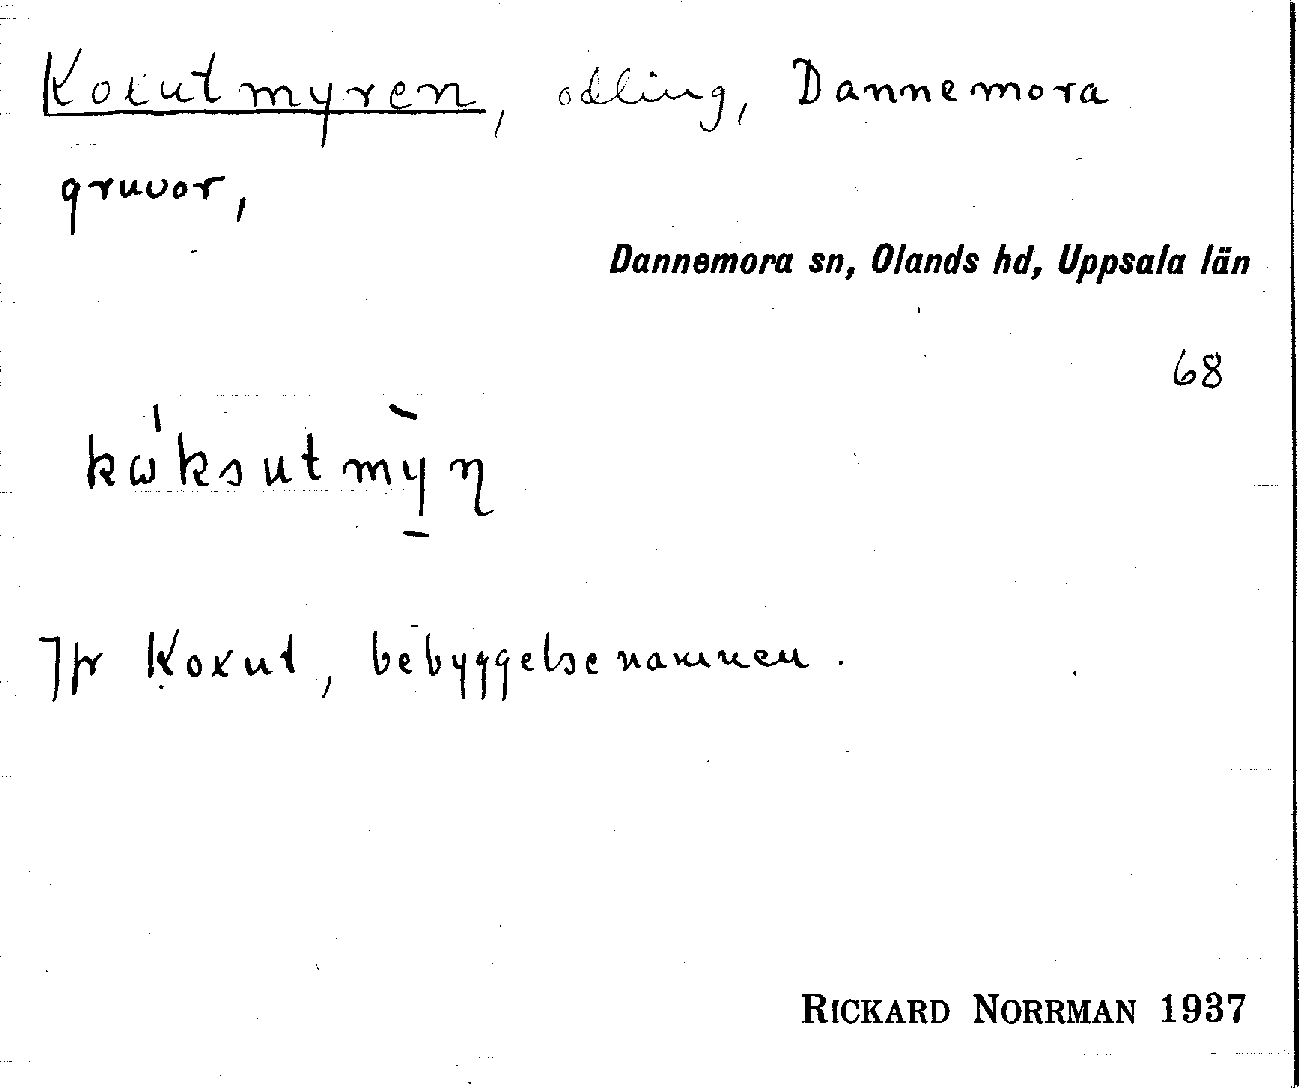 Koxutmyren, odling, Dannemora
gruvor,
Dannemora sn, Olands hd, Uppsala län
68
kω'ksutmỳ̠ƞ
Jfr Koxut, bebyggelsenamnen.
RICKARD NORRMAN 1937